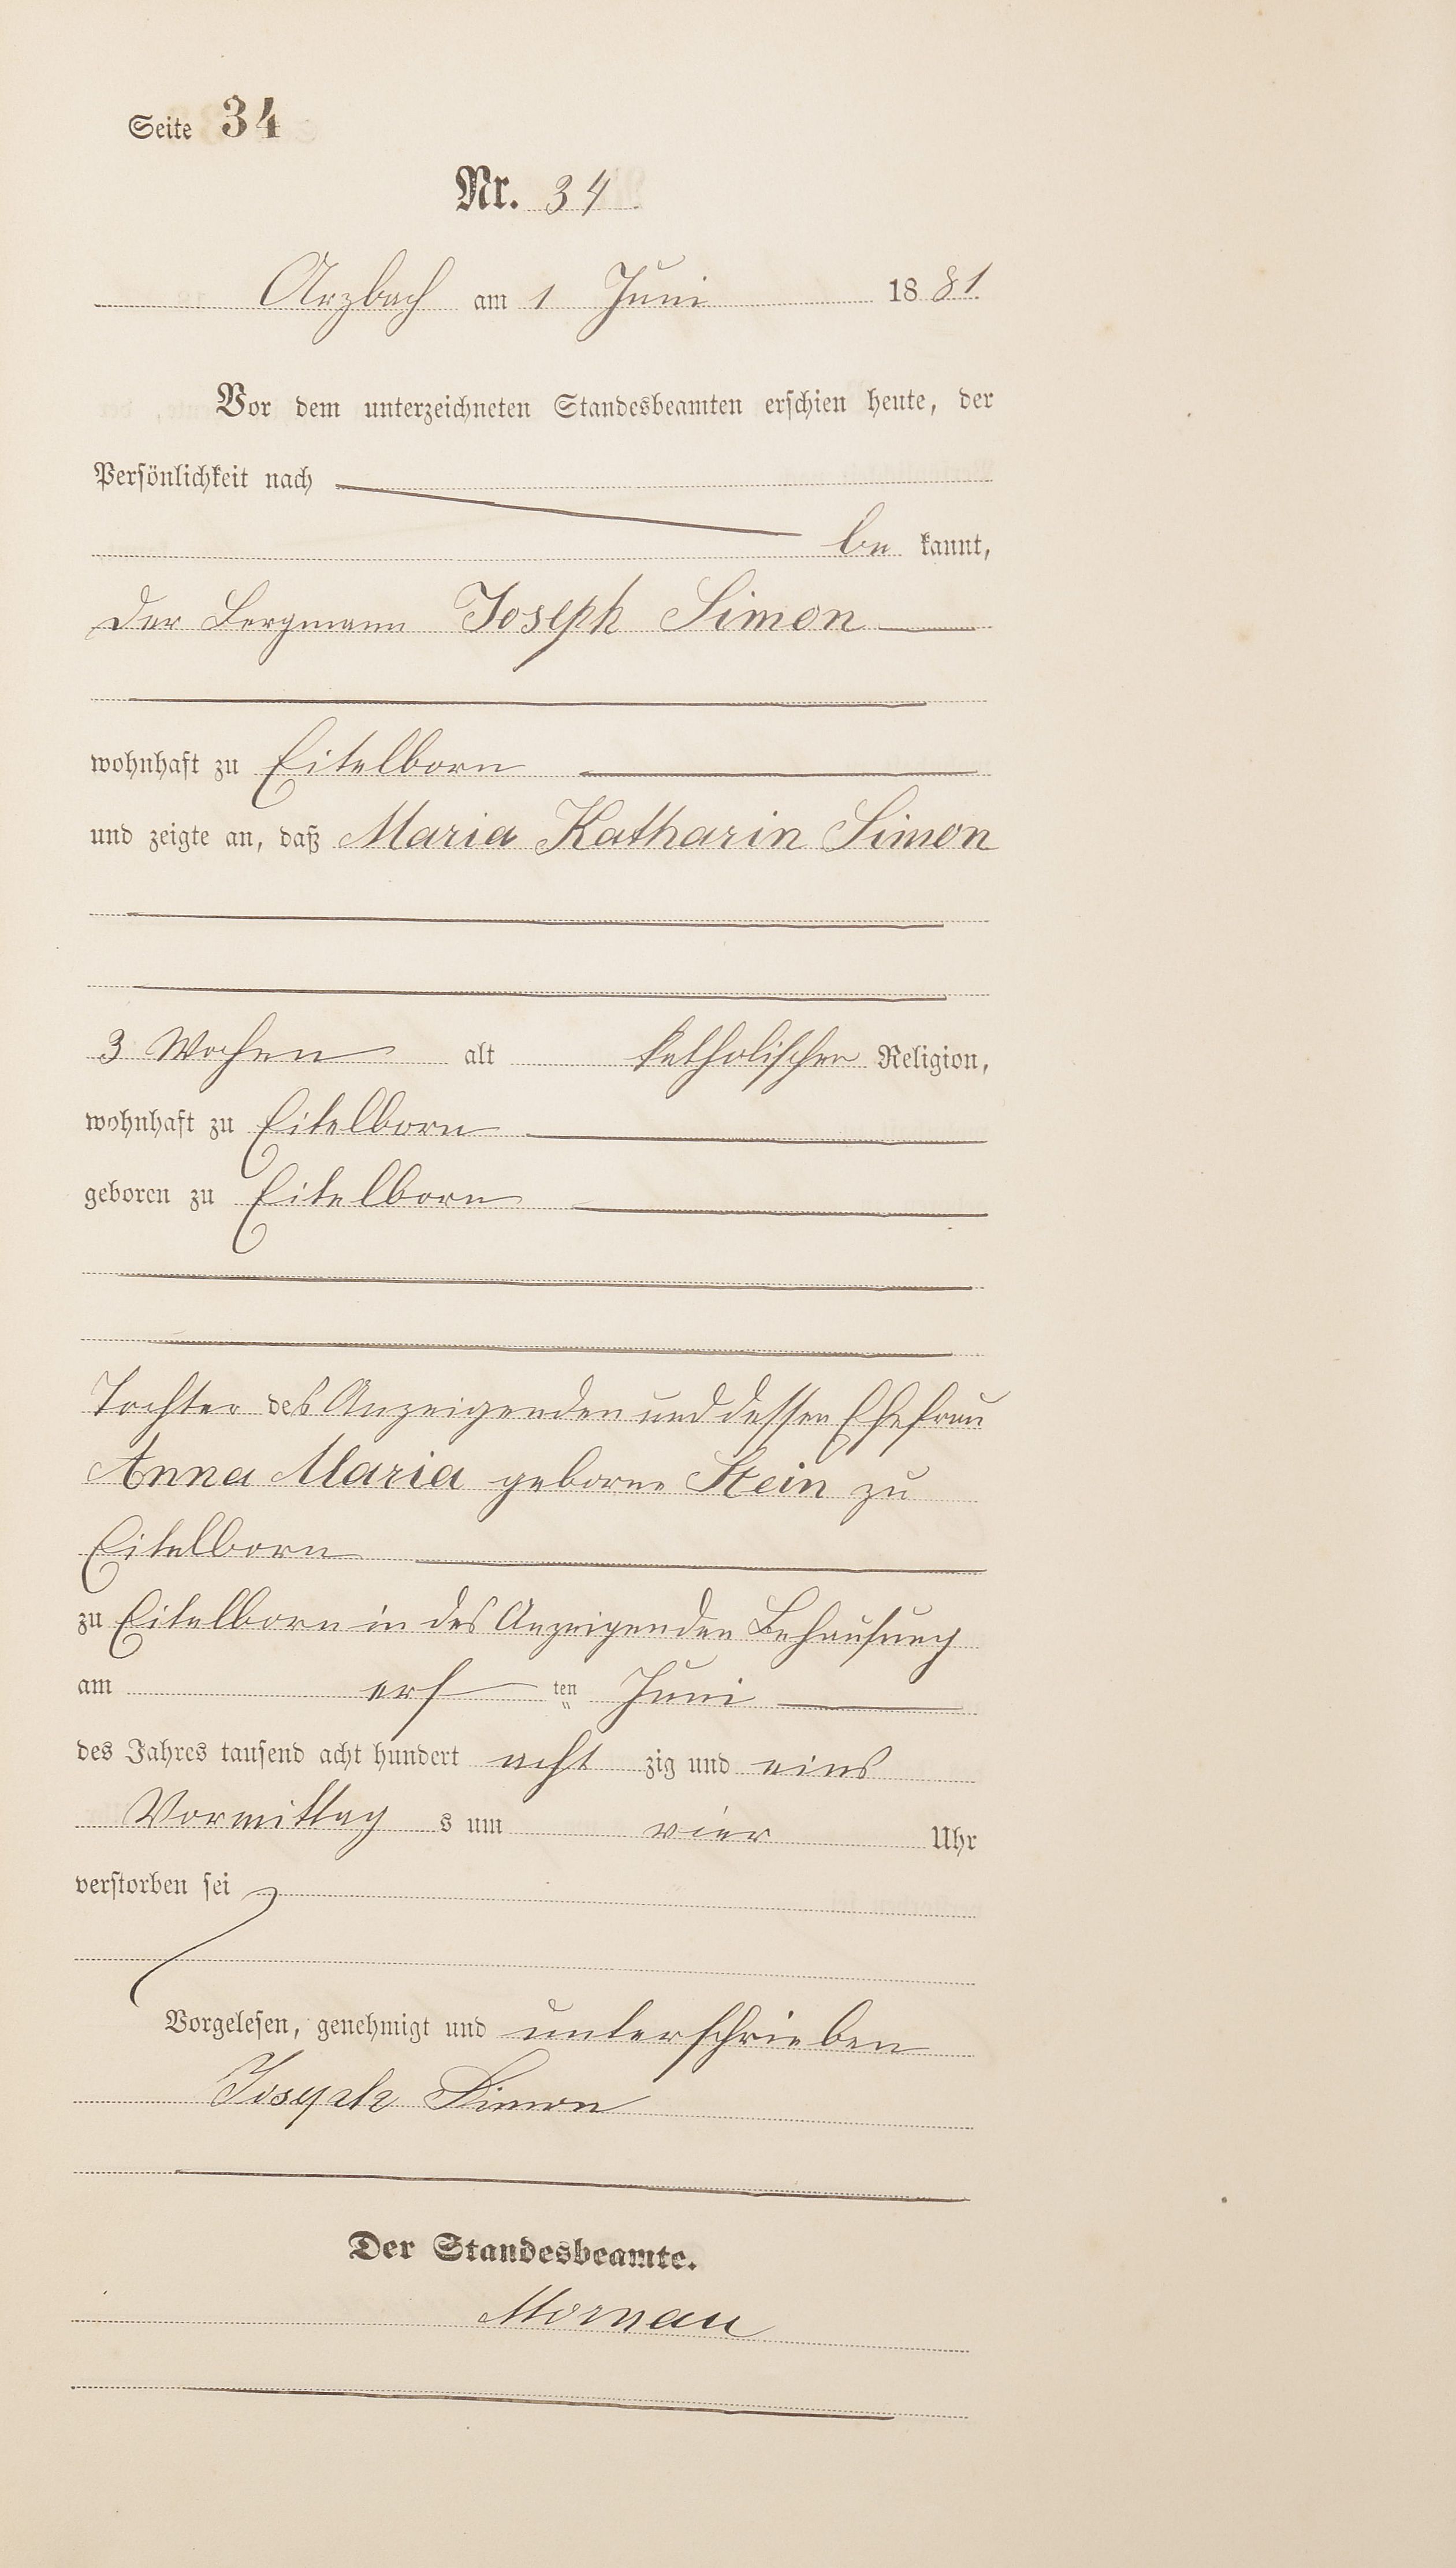 Seite 34
Nr. 34
Arzbach am 1 Juni 1881.
Vor dem unterzeichneten Standesbeamten erschien heute, der
Persönlichkeit nach
be kannt,
der Bergmann Joseph Simon
wohnhaft zu Eitelborn
und zeigte an, daß Maria Katharin Simon
3 Wochen alt katholischen Religion,
wohnhaft zu Eitelborn
geboren zu Eitelborn
Tochter des Anzeigenden und dessen Ehefrau
Anna Maria geborne Stein zu
Eitelborn
zu Eitelborn in des Anzeigenden Behausung
am ers ten Juni
des Jahres tausend acht hundert acht zig und eins
Vormittag s um vier Uhr
verstorben sei
Vorgelesen, genehmigt und unterschrieben
Joseph Simon
Der Standesbeamte.